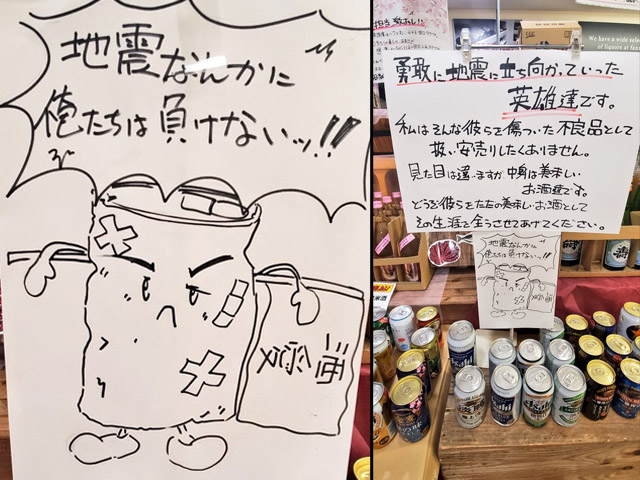 地震なんかに
俺たちは負けないッ!!
担当 敬白!!
We have a wide selec
of liquors at fam
勇敢に地震に立ち向かっていった
英雄達です。
私はそんな彼らを傷ついた不良品として
扱い安売りしたくありません。
見た目は違いますが中身は美味しい
お酒達です。
どうぞ彼らをただの美味しいお酒として
その生涯を全うさせてあげてください。
地震なんかに
俺たちは負けないッ!!
Asahi
Asahi